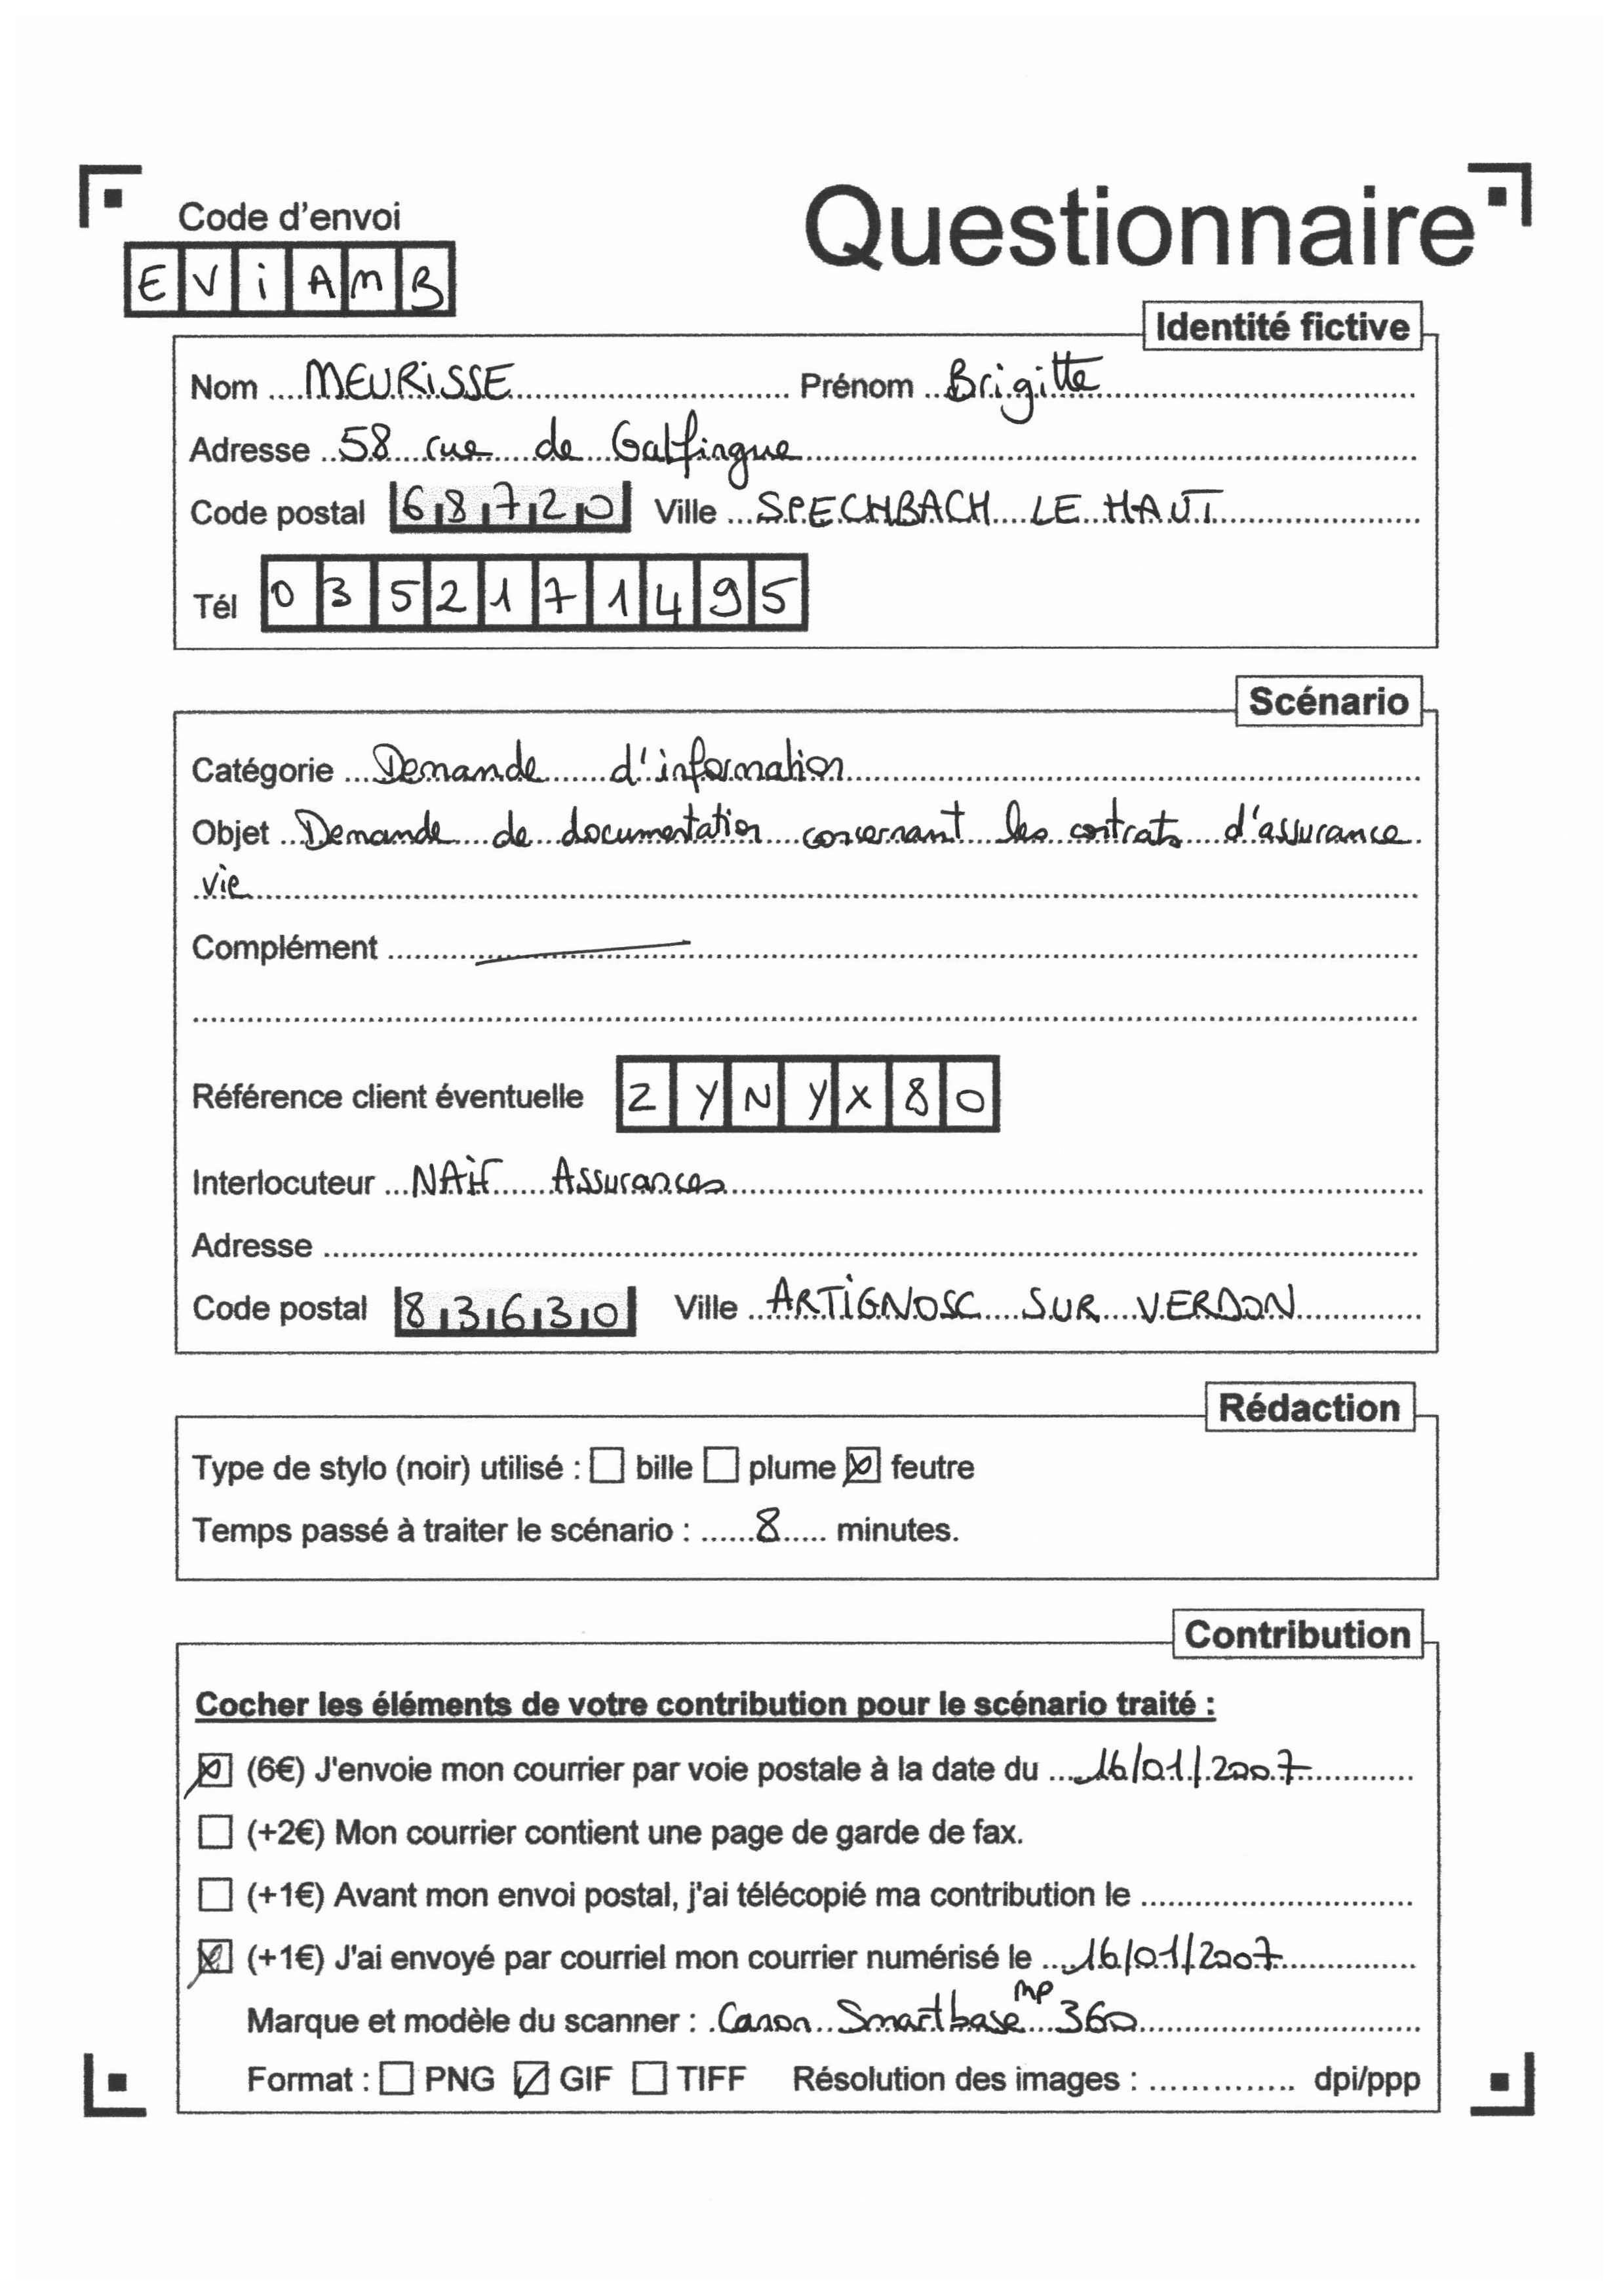 Code d'envoi
Questionnaire
E V i A M B
Identité fictive
Nom MEURiSSE Prénom Brigitte
Adresse 58 rue de Galfingue
Code postal 68720 Ville SPECHBACH LE HAUT
Tél 0352171495
Scénario
Catégorie Demande d'information
Objet Demande de documentation concernant les contrats d'assurance
vie
Complément
Référence client éventuelle 2YNYX80
Interlocuteur NAïF Assurances
Adresse
Code postal 83630 Ville ARTiGNOSC SUR VERDON
Rédaction
Type de stylo (noir) utilisé : ☐ bille ☐ plume ☒ feutre
Temps passé à traiter le scénario : 8 minutes.
Contribution
Cocher les éléments de votre contribution pour le scénario traité :
☒ (6€) J'envoie mon courrier par voie postale à la date du 16/01/2007
☐ (+2€) Mon courrier contient une page de garde de fax.
☐ (+1€) Avant mon envoi postal, j'ai télécopié ma contribution le
☒ (+1€) J'ai envoyé par courriel mon courrier numérisé le 16/01/2007
Marque et modèle du scanner : Canon Smartbase MP 360
Format : ☐ PNG ☒ GIF ☐ TIFF Résolution des images : dpi/ppp